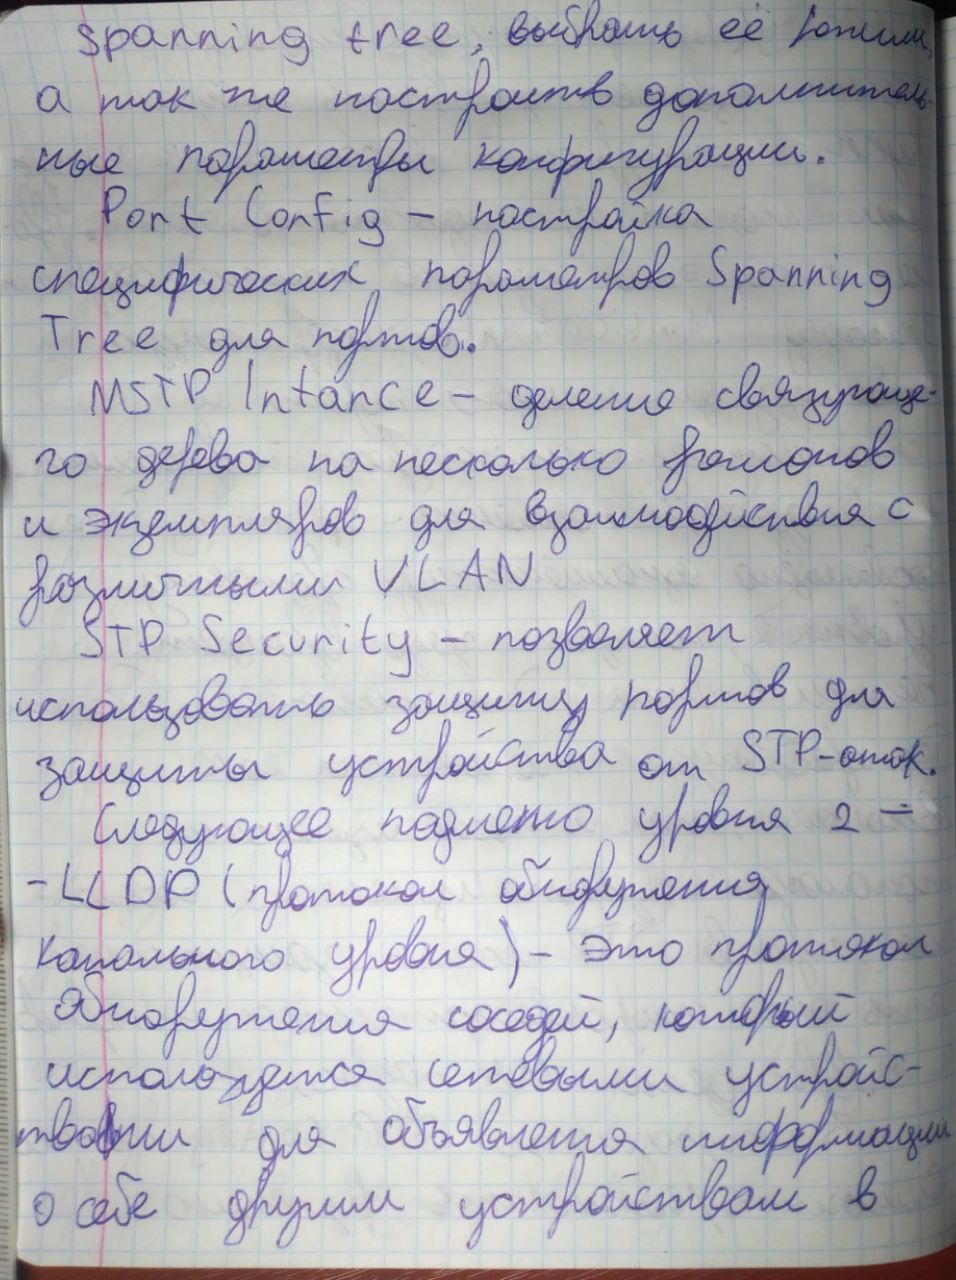 Spanning tree, выбрать её режим,
а так же настроить дополнитель-
ные параметры конфигурации.
Port Config – настройка
специфических параметров Spanning
Tree для портов.
MSTP Intance – деление связующе-
го дерева на несколько регионов
и экземпляров для взаимодействия с
различными VLAN
STP Security – позволяет
использовать защиту портов для
защиты устройства от STP-атак.
Следующее подменю уровня 2 –
- LLDP (протокол обнаружения
канального уровня) – это протокол
обнаружения соседей, который
используется сетевыми устройс-
твами для объявления информации
о себе другим устройствам в